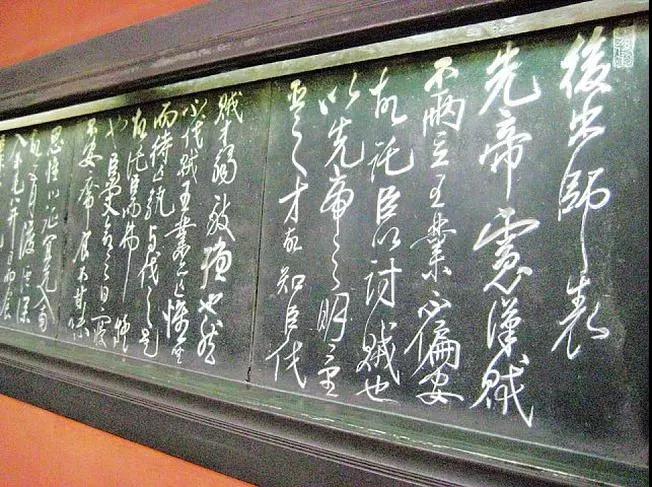 後出師表
先帝慮漢賊
不兩立王業不偏安
故託臣以討賊也
以先帝之明量
臣之才故知臣伐
賊才弱敵彊也然
不伐賊王業亦亡惟坐
而待亡孰與伐之是
故託臣而弗疑
也臣受命之日寢
不安席食不甘味
思惟北征宜先入南
故五月渡瀘深
入不毛并日而食